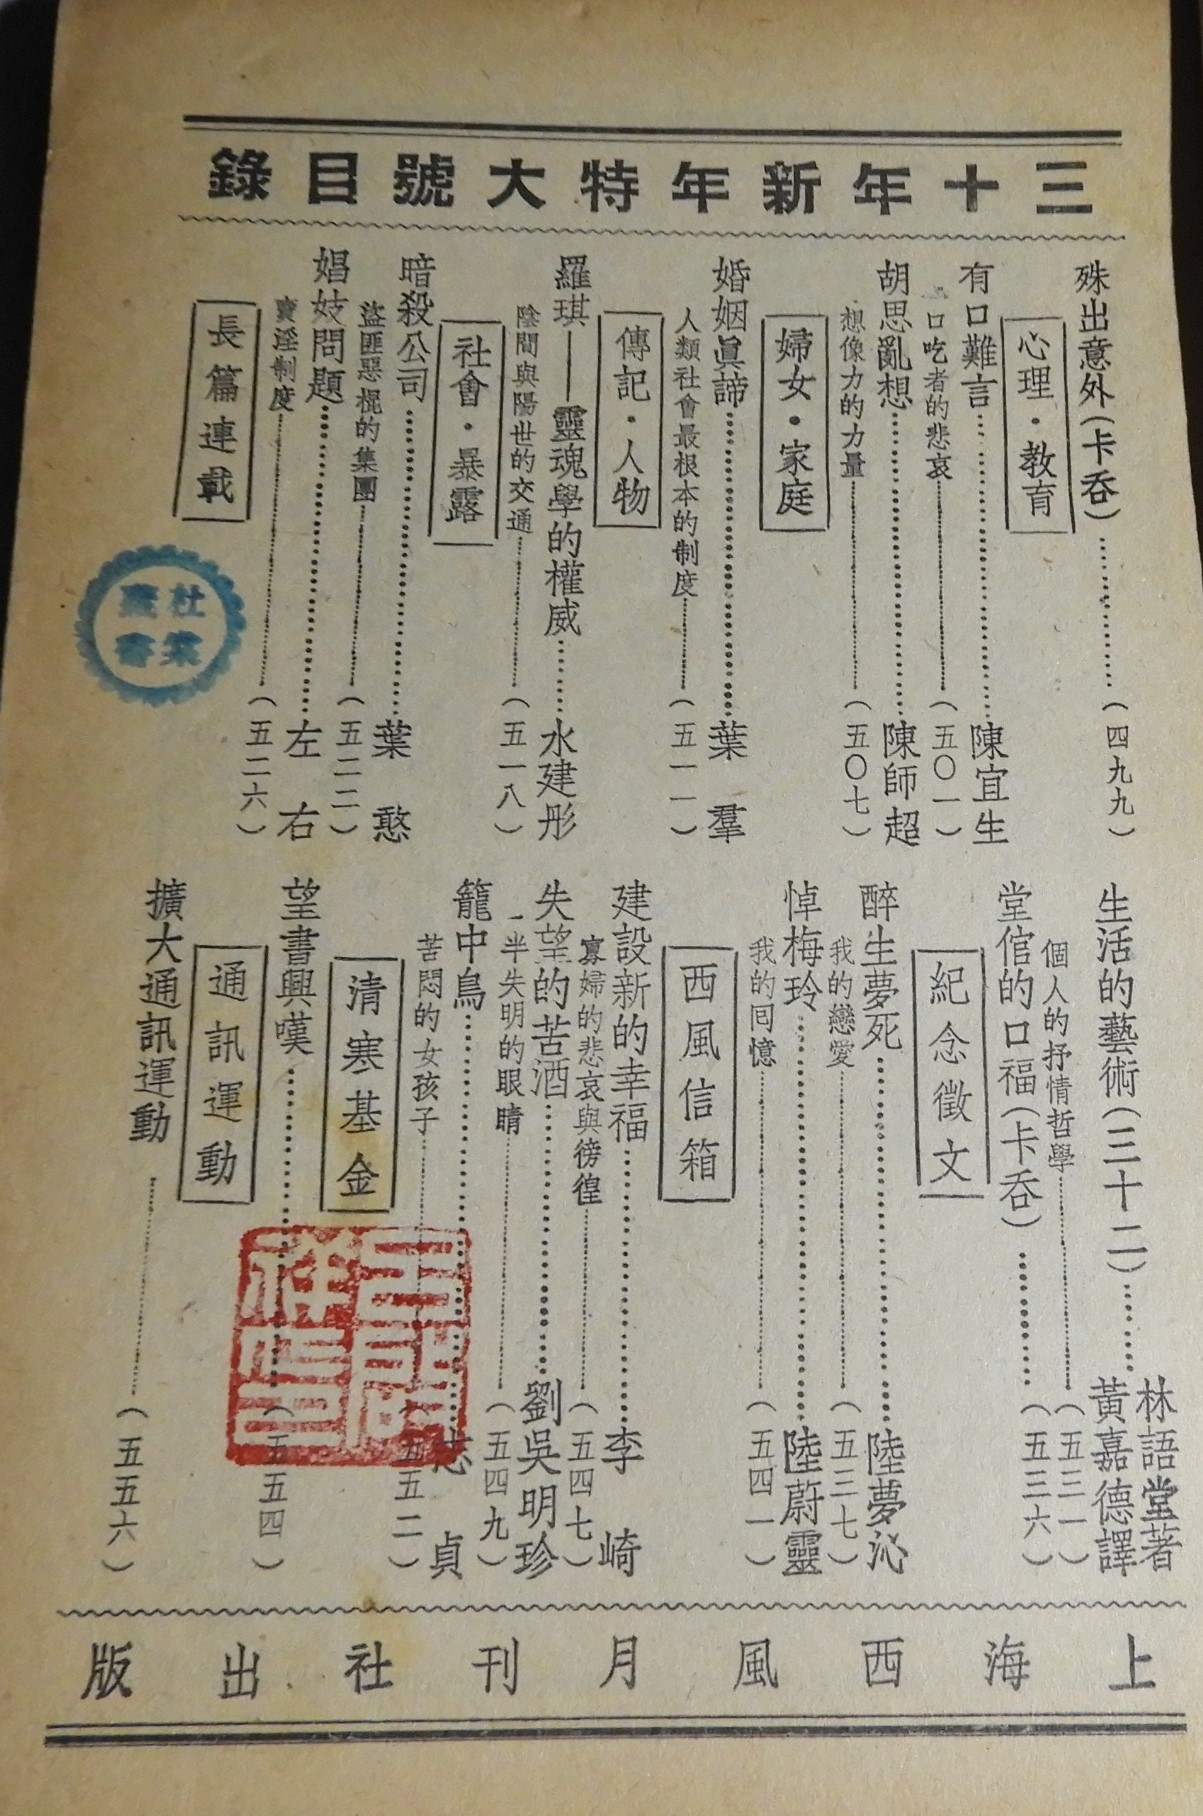 三十年新年特大號目錄
殊出意外(卡吞)…………(四九九)
心理・教育
有口難言…………陳宜生
口吃者的悲哀…………(五〇一)
胡思亂想…………陳師超
想像力的力量…………(五〇七)
婦女・家庭
婚姻眞諦…………葉羣
人類社會最根本的制度…………(五一一)
傳記・人物
羅琪——靈魂學的權威…………水建彤
陰間與陽世的交通…………(五一八)
社會・暴露
暗殺公司…………葉憨
盜匪惡棍的集團…………(五二二)
娼妓問題…………左右
賣淫制度…………(五二六)
長篇連載
生活的藝術(三十二)…………林語堂著 黃嘉德譯
個人的抒情哲學…………(五三一)
堂倌的口福(卡吞)…………(五三六)
紀念徵文
醉生夢死…………陸夢沁
我的戀愛…………(五三七)
悼梅玲…………陸蔚靈
我的囘憶…………(五四一)
西風信箱
建設新的幸福…………李崎
寡婦的悲哀與徬徨…………(五四七)
失望的苦酒…………劉吳明珍
一半失明的眼睛…………(五四九)
籠中鳥…………志貞
苦悶的女孩子…………(五五二)
清寒基金
望書興嘆…………(五五四)
通訊運動
擴大通訊運動…………(五五六)
上海西風月刊社出版